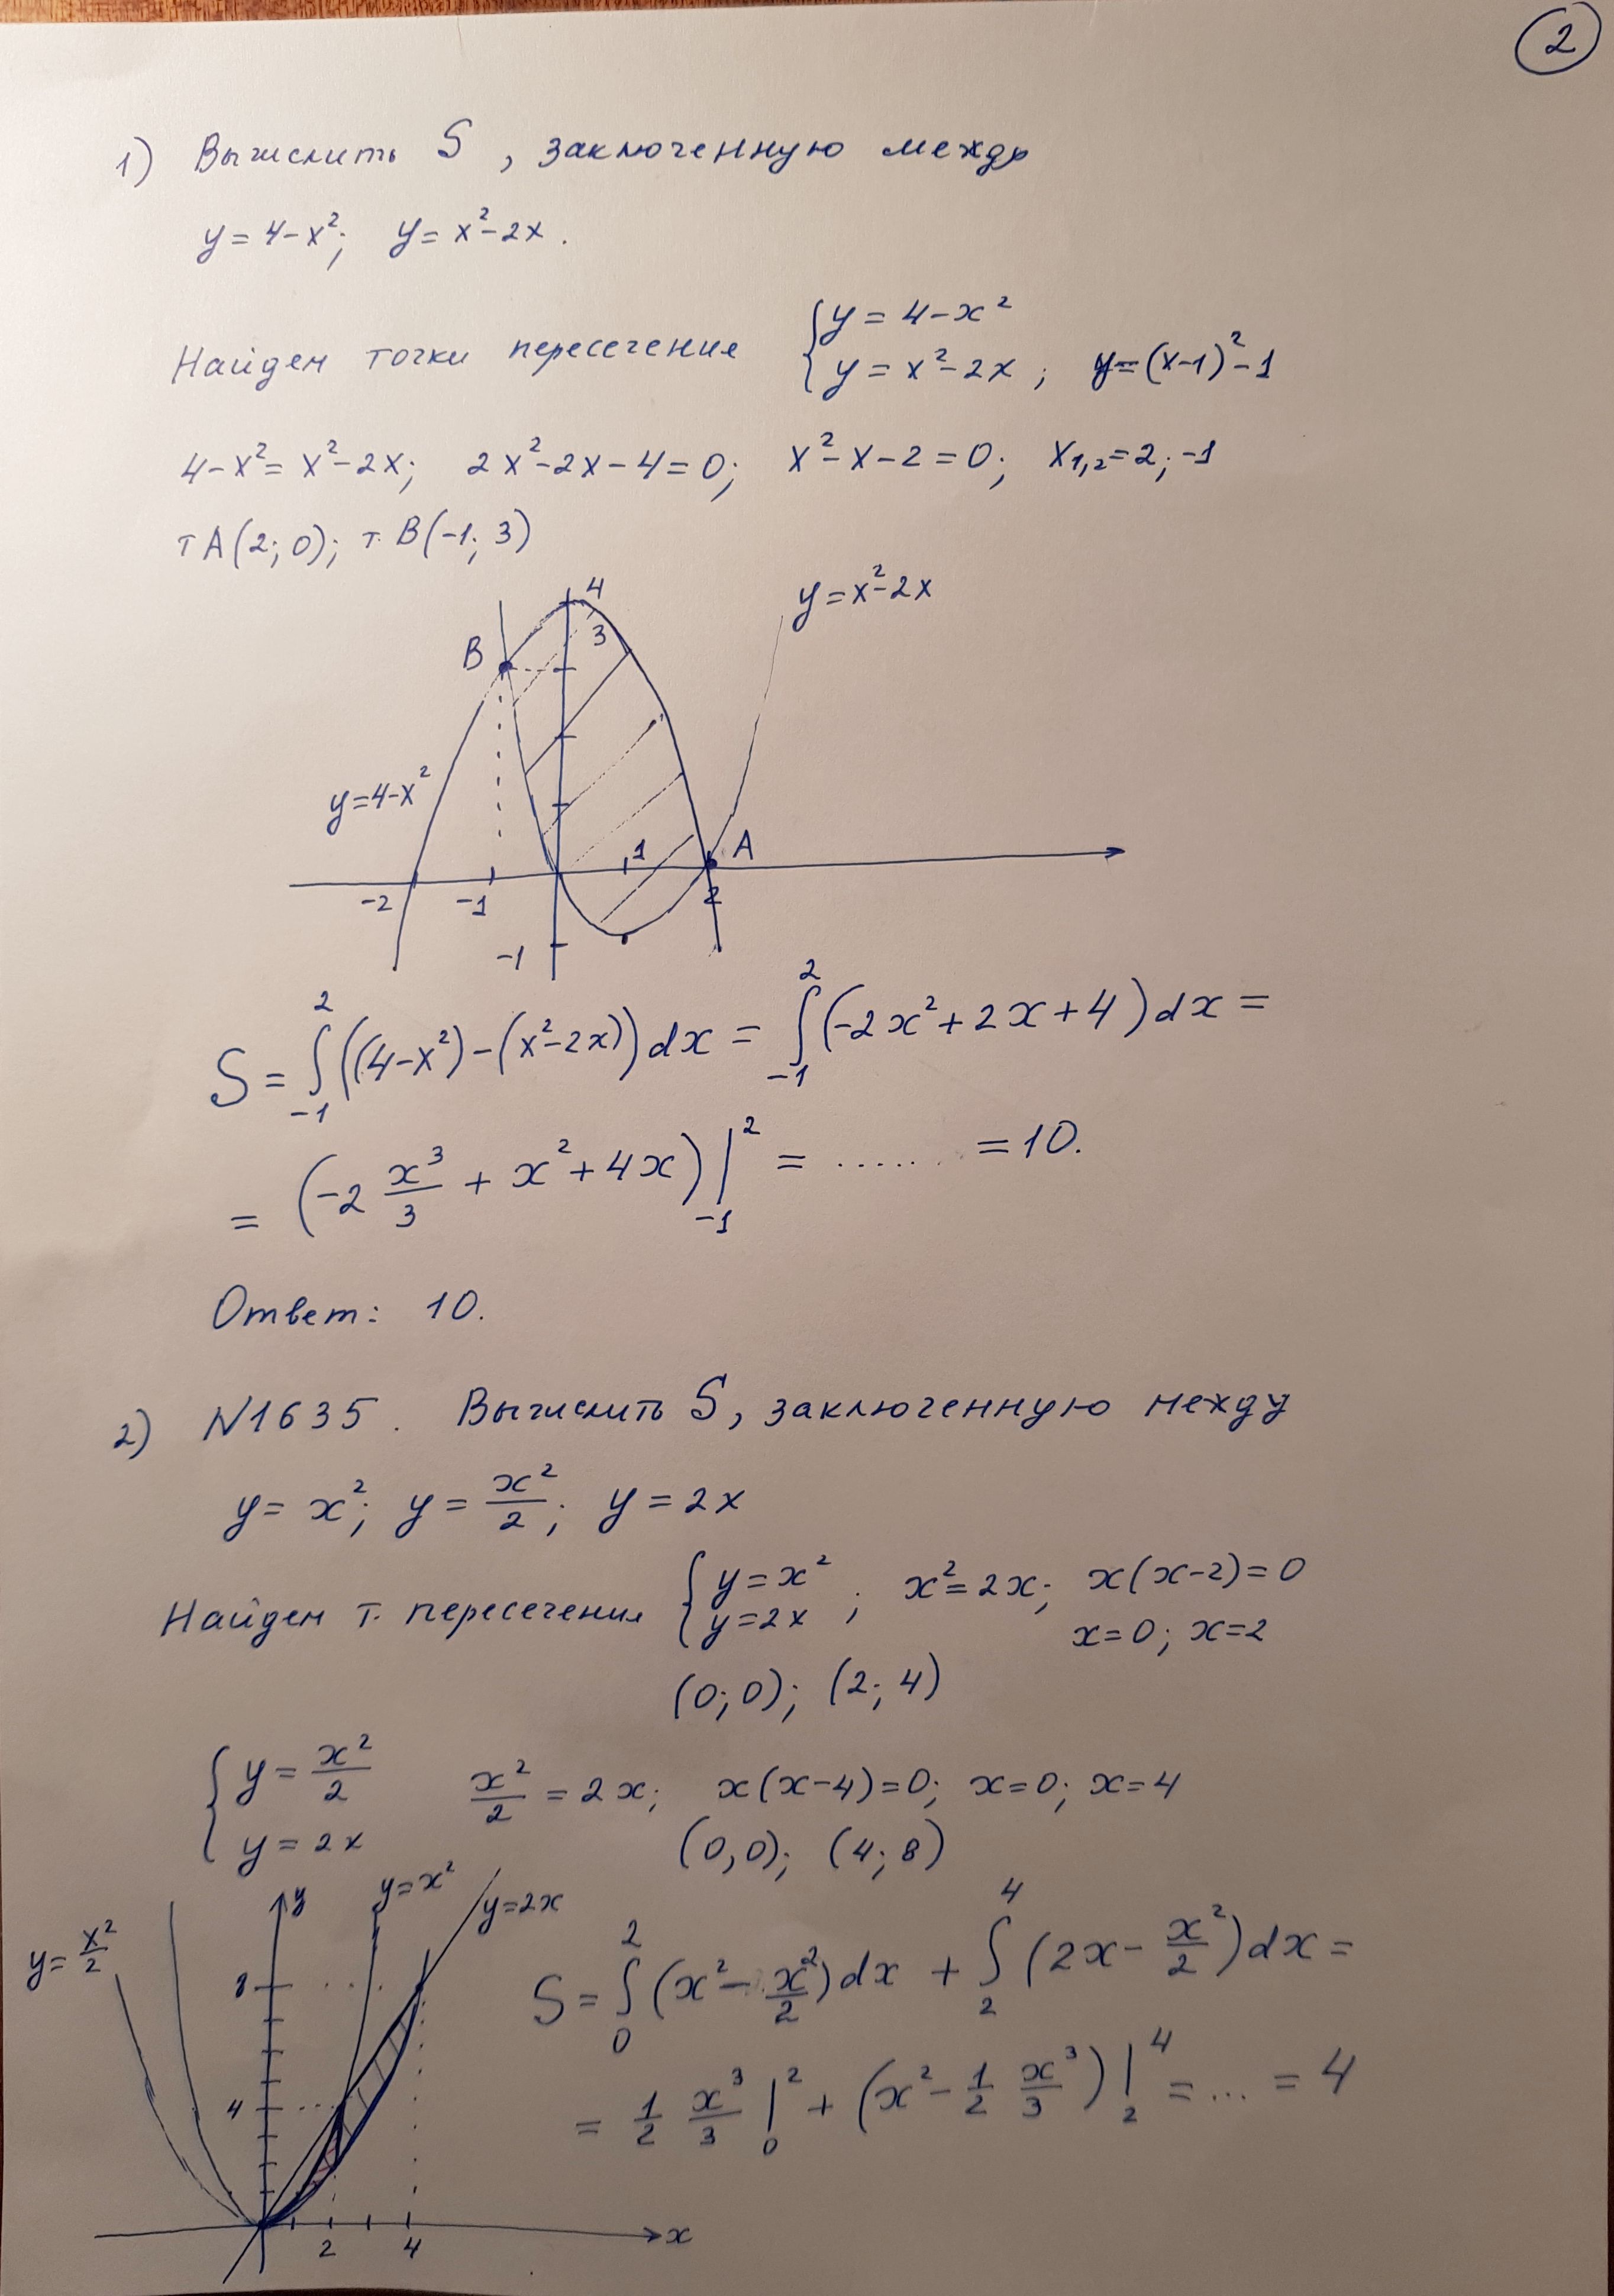 2
1) Вычислить S, заключенную между
y = 4-x²; y = x²-2x.
Найдем точки пересечения { y = 4-x²
y = x²-2x ; y=(x-1)²-1
4-x² = x²-2x; 2x²-2x-4=0; x²-x-2=0; x₁,₂=2;-1
т A(2; 0); т. B(-1; 3)
4
y=x²-2x
3
B
y=4-x²
1
A
-2 -1 2
-1
S = ∫₋₁² ((4-x²)-(x²-2x)) dx = ∫₋₁² (-2x²+2x+4) dx =
= (-2 x³/3 + x² + 4x) |₋₁² = ........ = 10.
Ответ: 10.
2) N1635. Вычислить S, заключенную между
y = x²; y = x²/2; y = 2x
Найдем т. пересечения { y = x²
y = 2x ; x² = 2x; x(x-2)=0
x=0; x=2
(0;0); (2; 4)
{ y = x²/2
y = 2x x²/2 = 2x; x(x-4)=0; x=0; x=4
(0,0); (4; 8)
y = x²/2 y y=x² y=2x
8
4
2 4 x
S = ∫₀² (x² - x²/2) dx + ∫₂⁴ (2x - x²/2) dx =
= 1/2 x³/3 |₀² + (x² - 1/2 x³/3) |₂⁴ = ... = 4